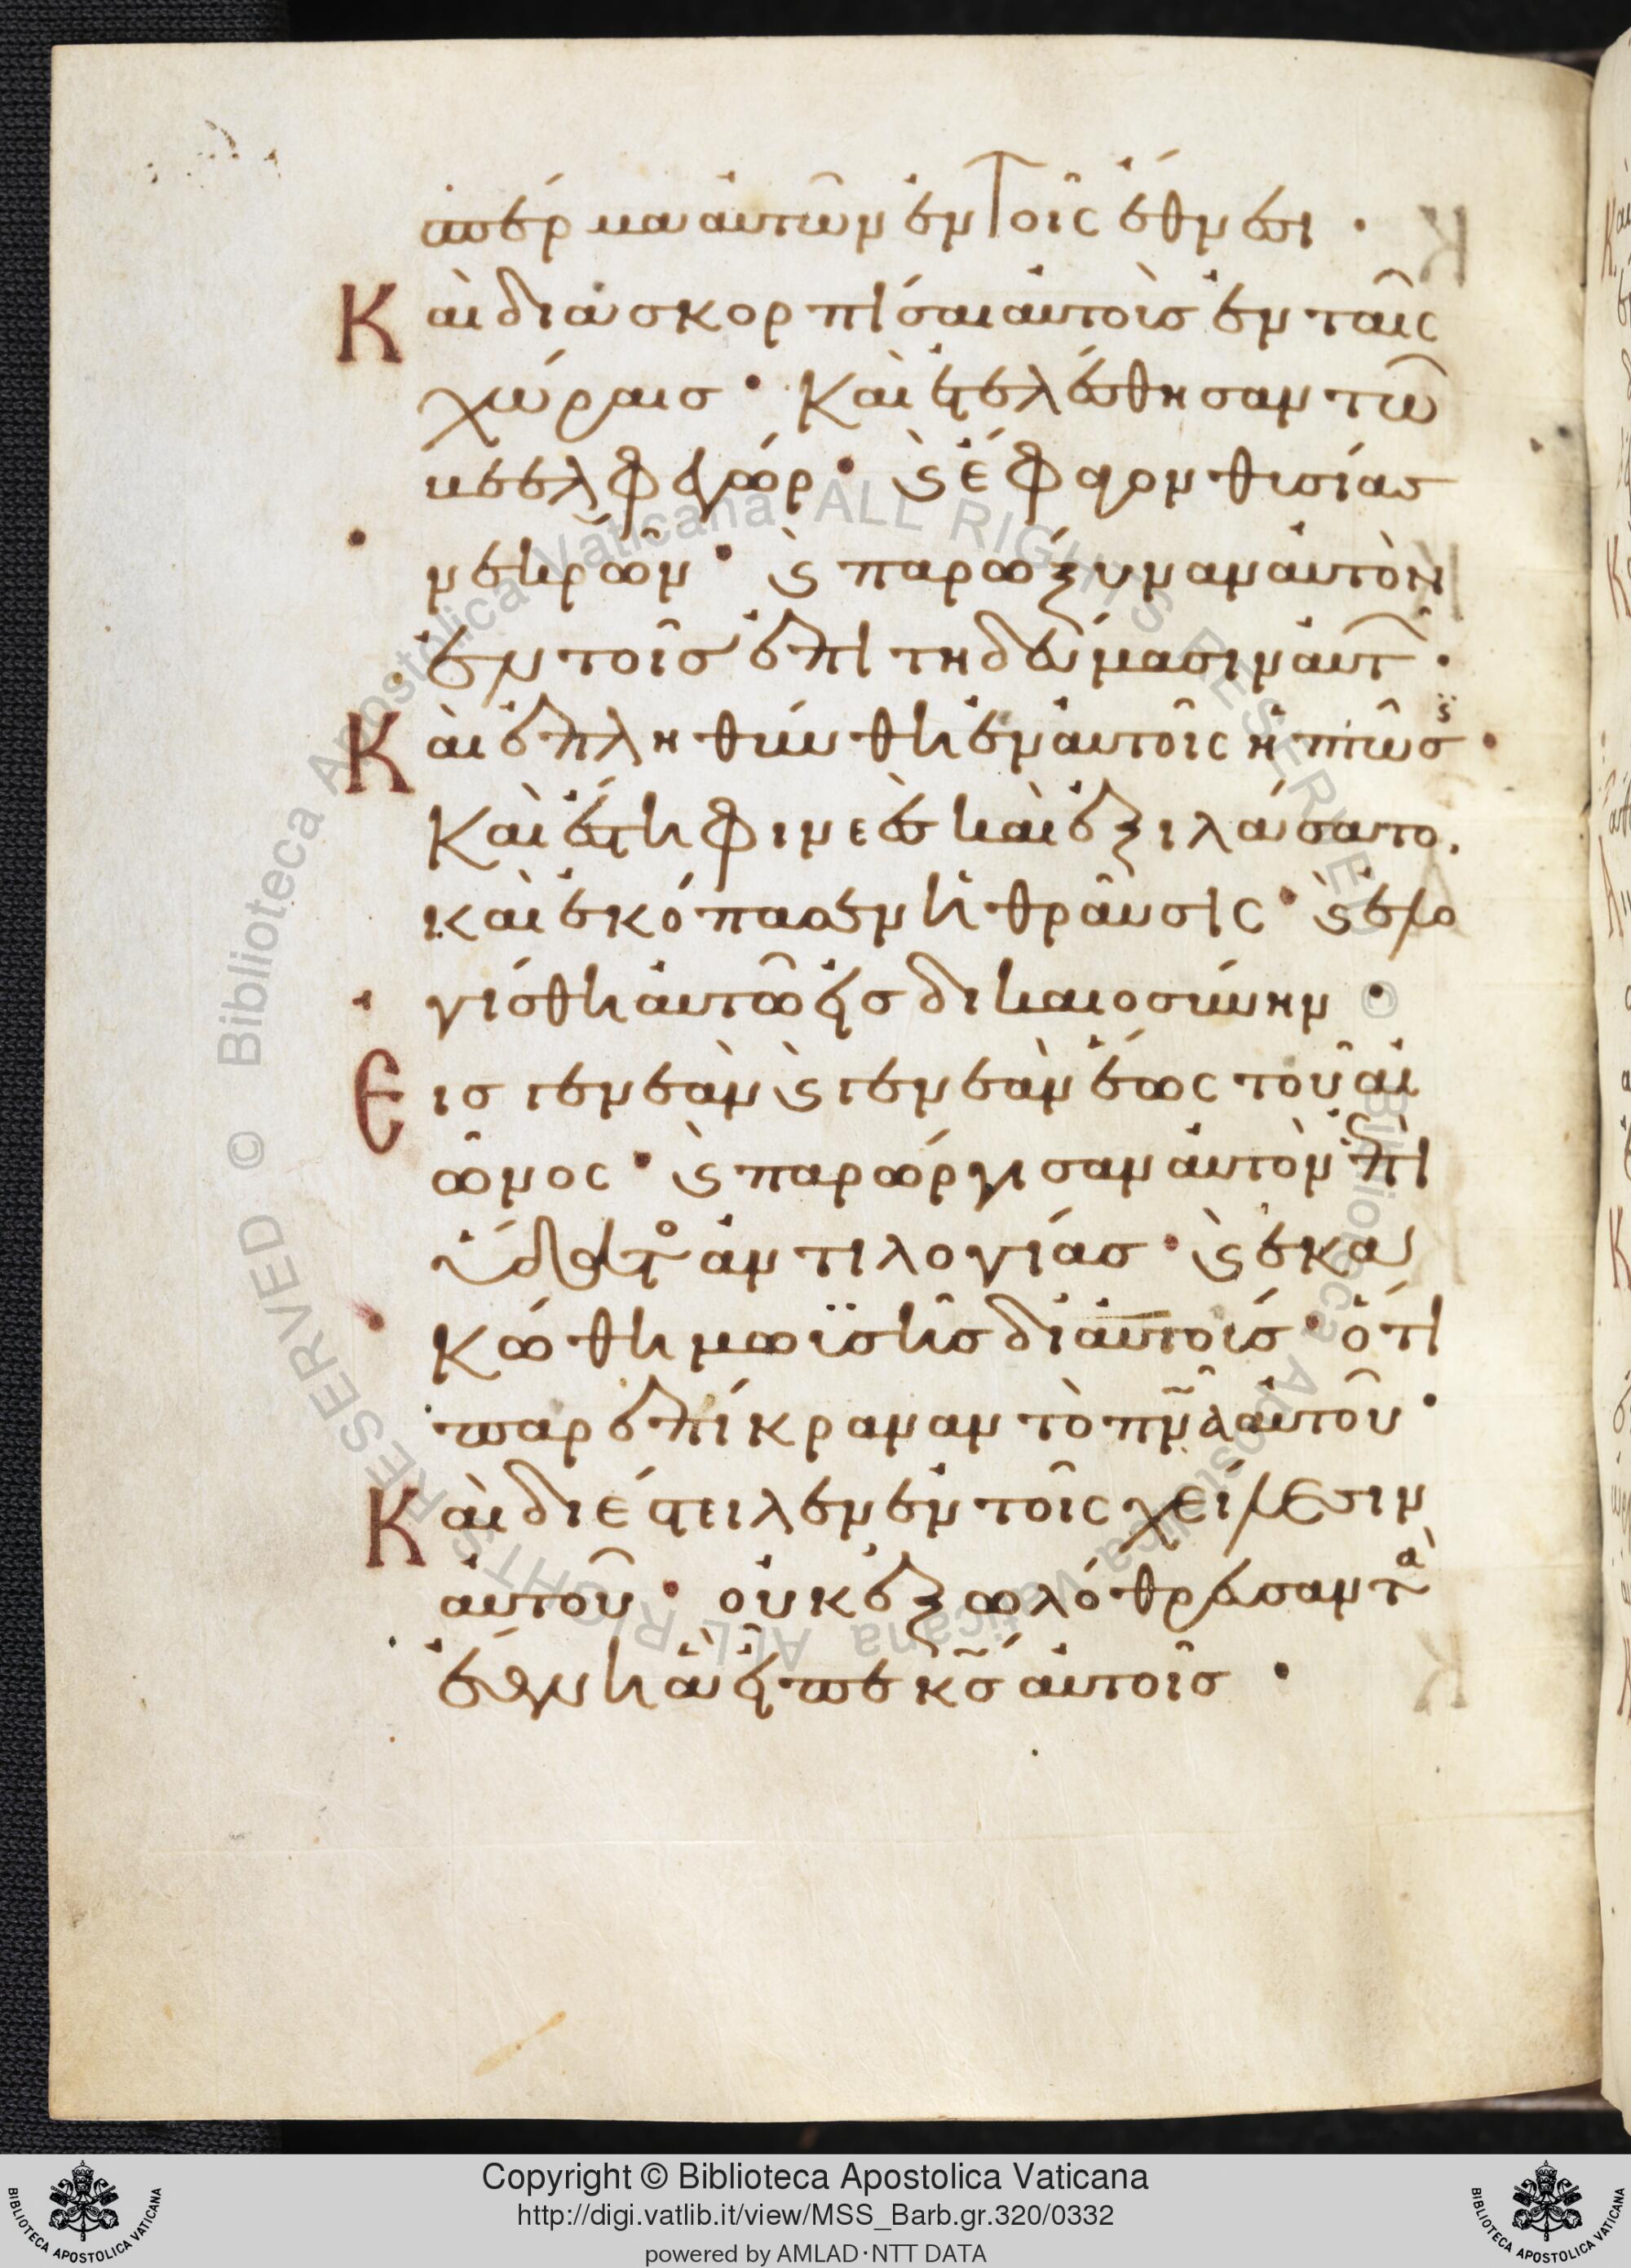 σπέρμα αὐτῶν ἐν τοῖς ἔθνεσι ·
Καὶ διασκορπίσαι αὐτοὺσ ἐν ταῖς
χώραισ · Καὶ ἐτελέσθησαν τῶ
βεελφεγώρ · ϛ ἔφαγον θυσίασ
νεκρῶν · ϛ παρώξυναν αὐτὸν
ἐν τοῖσ ἐπιτηδεύμασιν αὐτ ·
Καὶ ἐπληθύνθη ἐν αὐτοῖς ἡ πτῶσϛ ·
Καὶ ἔστη φινεὲσ καὶ ἐξιλάσατο ·
καὶ ἐκόπασεν ἡ θραῦσις · ϛ ἐλο
γίσθη αὐτῶ εἰσ δικαιοσύνην ·
Εισ γενεὰν ϛ γενεὰν ἕως τοῦ αἰ
ῶνος · ϛ παρώργισαν αὐτὸν ἐπὶ
ὕδατο ἀντιλογίασ · ϛ ἐκα
κώθη μωϋσῆσ δι αὐτούσ · ὅτι
παρεπίκραναν τὸ πνα αὐτοῦ ·
Καὶ διέστειλεν ἐν τοῖς χείλεσιν
αὐτοῦ · οὐκ ἐξωλόθρευσαν τὰ
ἔθνη ἃ εἶπε κσ αὐτοῖσ ·
Copyright © Biblioteca Apostolica Vaticana
http://digi.vatlib.it/view/MSS_Barb.gr.320/0332
powered by AMLAD·NTT DATA
BIBLIOTECA APOSTOLICA VATICANA
BIBLIOTECA APOSTOLICA VATICANA